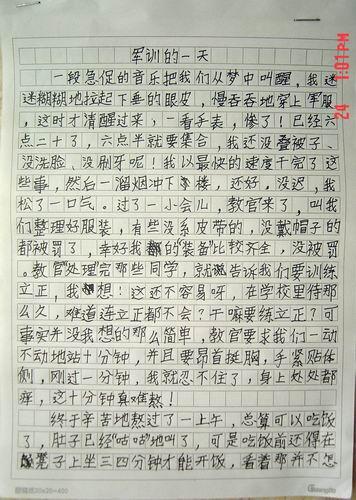 军训的一天
一段急促的音乐把我们从梦中叫醒，我迷
迷糊糊地拉起下垂的眼皮，慢吞吞地穿上军服
，这时才清醒过来，一看手表，惨了！已经六
点二十了，六点半就要集合，我还没叠被子、
没洗脸、没刷牙呢！我以最快的速度干完了这
些事，然后一溜烟冲下楼，还好，没迟，我
松了一口气。过了一小会儿，教官来了，叫我
们整理好服装，有些没系皮带的，没戴帽子的
都被罚了，幸好我的“装备”比较齐全，没被罚
。教官处理完那些同学，就告诉我们要训练
立正，我想！这还不容易呀，在学校里待那
么久，难道连立正都不会？干嘛要练立正？可
事实并没我想的那么简单，教官要求我们一动
不动地站十分钟，并且要昂首挺胸，手紧贴体
侧，刚过一分钟，我就忍不住了，身上处处都
痒，这十分钟真难熬！
终于辛苦地熬过了一上午，总算可以吃饭
了，肚子已经“咕咕”地叫了，可是吃饭前还得在
凳子上坐三四分钟才能开饭，看着那并不怎
24 1:01PM